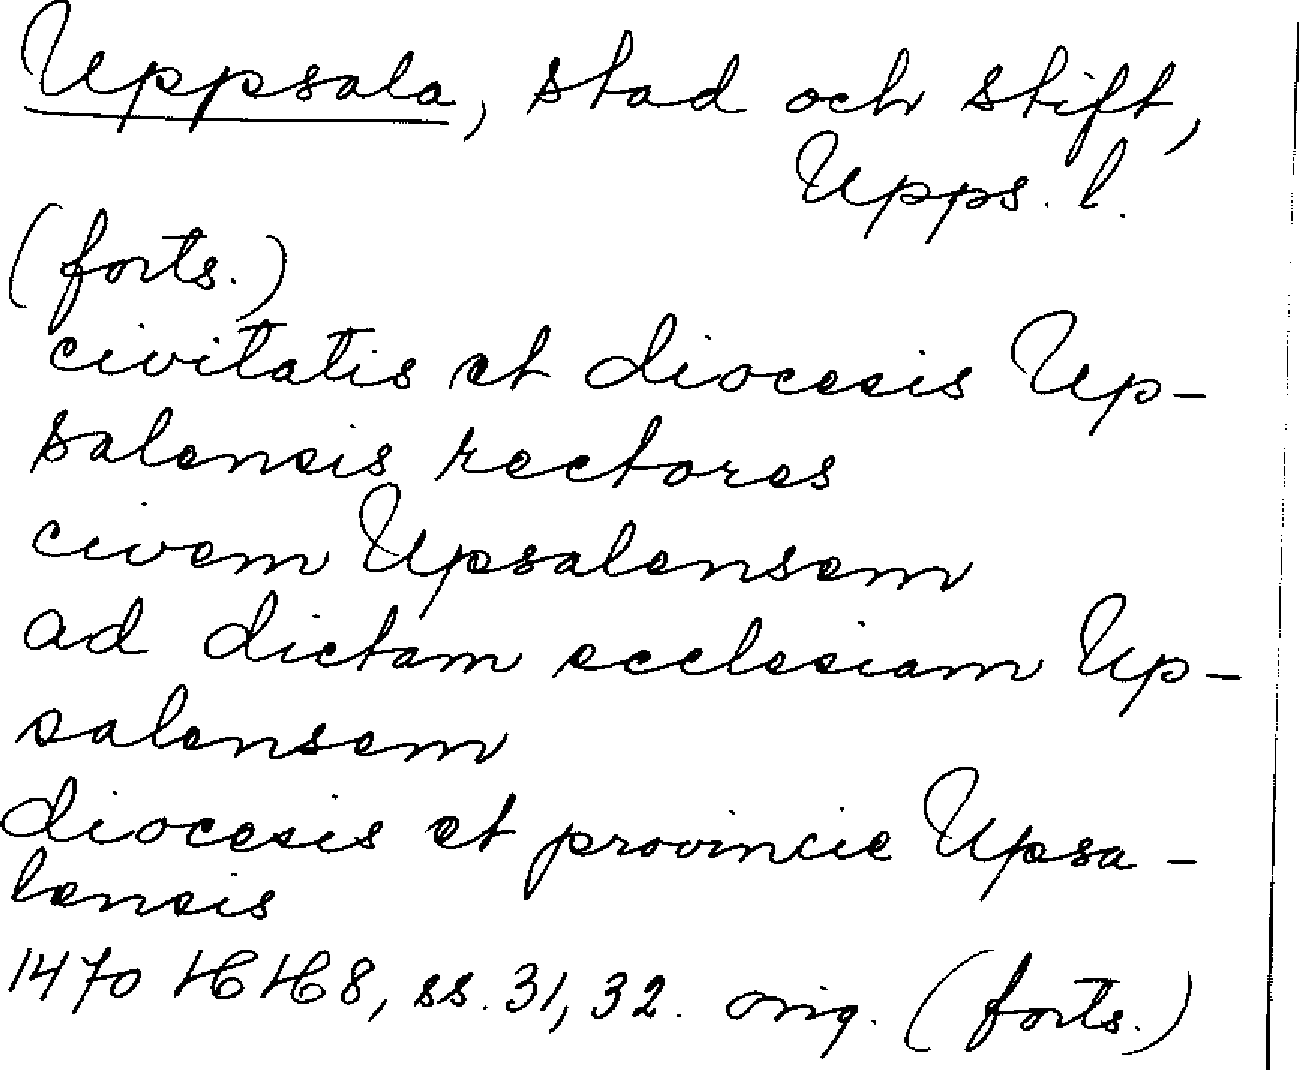 Uppsala, stad och stift,
Upps. l.
(forts.)
civitatis et diocesis Up-
salensis rectores
civem Upsalensem
ad dictam ecclesiam Up-
salensem
diocesis et provincie Upsa-
lensis
1470 HH 8, ss. 31, 32. orig. (forts.)